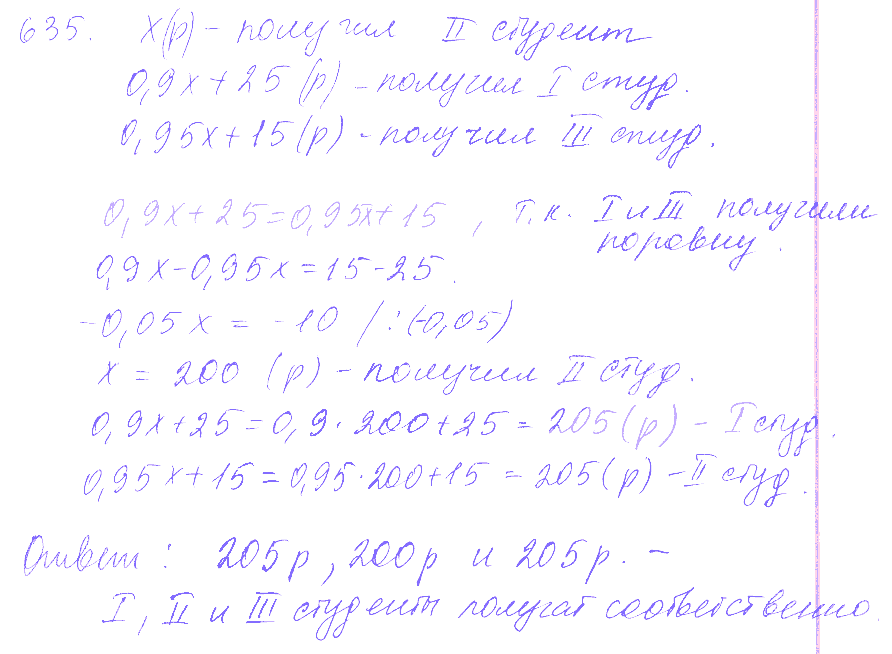 635. х(р) – получил II студент
0,9х + 25 (р) – получил I студ.
0,95х + 15 (р) – получил III студ.
0,9х + 25 = 0,95х + 15 , т.к. I и III получили
поровну.
0,9х – 0,95х = 15 – 25.
–0,05х = –10 /:(–0,05)
х = 200 (р) – получил II студ.
0,9х + 25 = 0,9 · 200 + 25 = 205 (р) – I студ.
0,95х + 15 = 0,95 · 200 + 15 = 205 (р) – II студ.
Ответ: 205 р, 200 р и 205 р. –
I, II и III студенты получат соответственно.